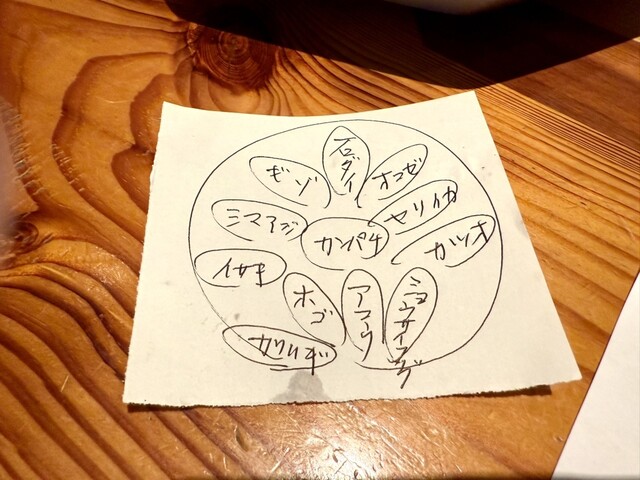 石ダイ
オコゼ
ギゾ
ヤリイカ
シマアジ
カンパチ
カツオ
イサキ
ホゴ
アマダイ
ショウサイフグ
カワハギ